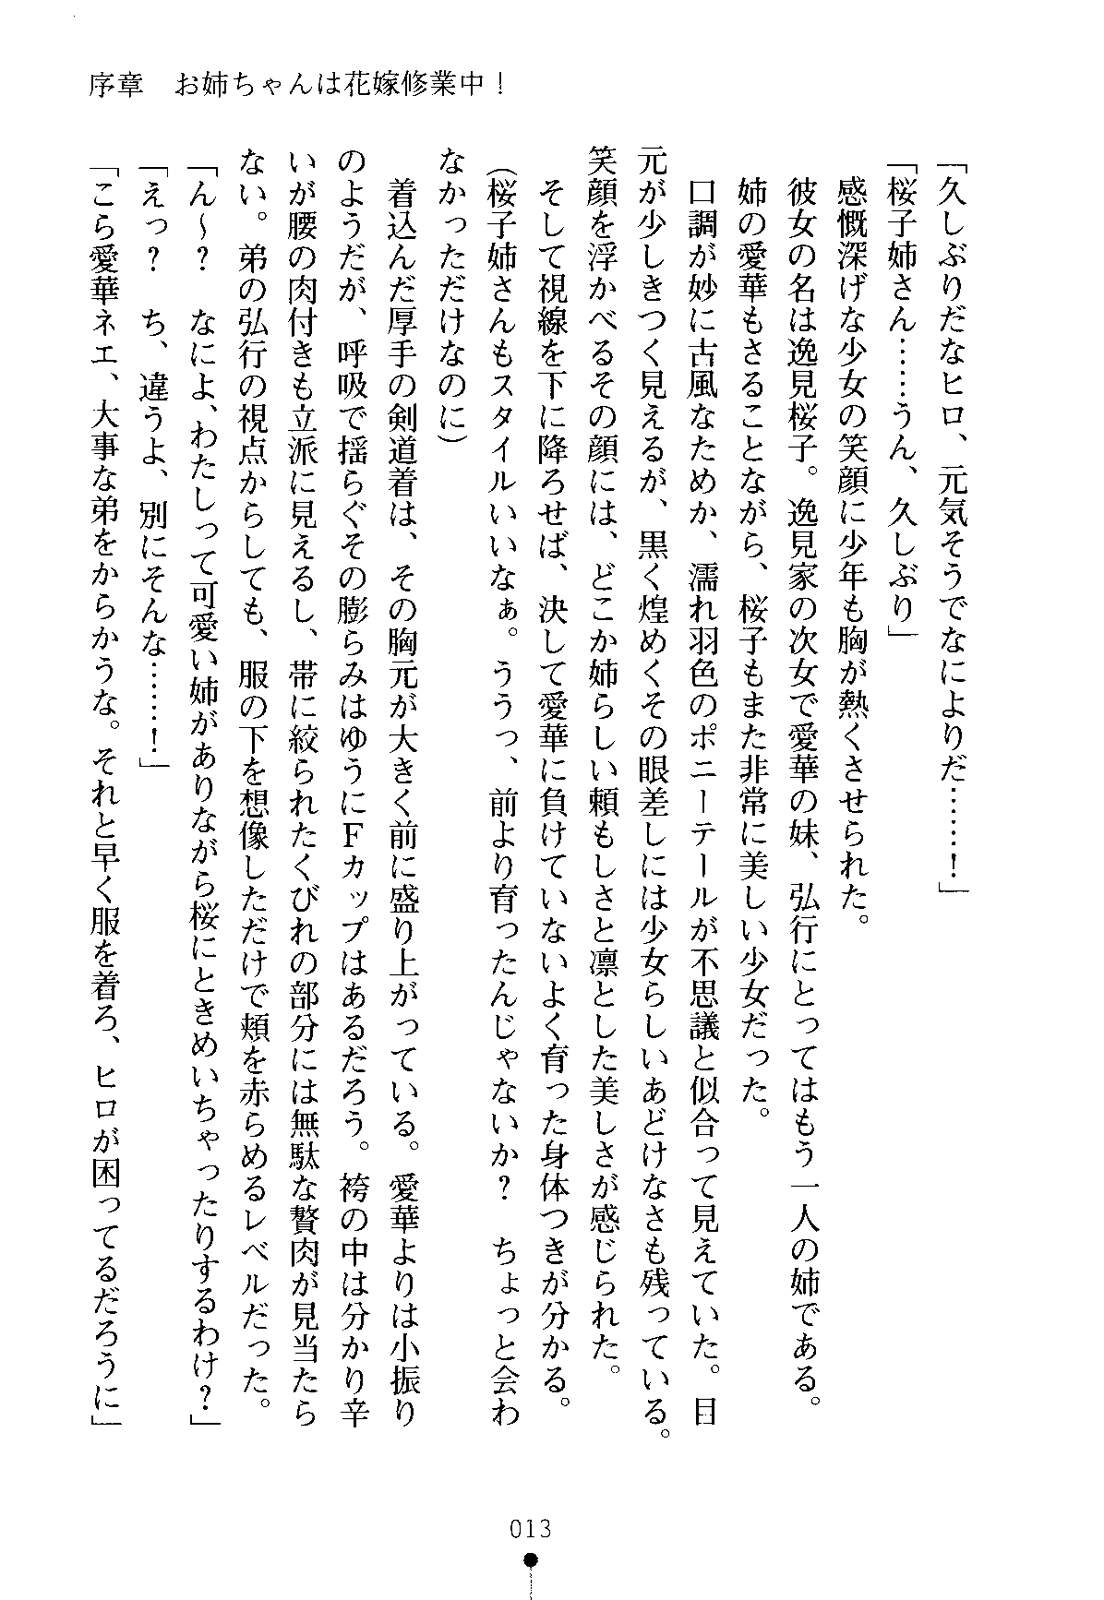 序章　お姉ちゃんは花嫁修業中！
「久しぶりだなヒロ、元気そうでなによりだ……！」
「桜子姉さん……うん、久しぶり」
　感慨深げな少女の笑顔に少年も胸が熱くさせられた。
　彼女の名は逸見桜子。逸見家の次女で愛華の妹、弘行にとってはもう一人の姉である。
　姉の愛華もさることながら、桜子もまた非常に美しい少女だった。
　口調が妙に古風なためか、濡れ羽色のポニーテールが不思議と似合って見えていた。目
元が少しきつく見えるが、黒く煌めくその眼差しには少女らしいあどけなさも残っている。
笑顔を浮かべるその顔には、どこか姉らしい頼もしさと凛とした美しさが感じられた。
　そして視線を下に降ろせば、決して愛華に負けていないよく育った身体つきが分かる。
（桜子姉さんもスタイルいいなぁ。ううっ、前より育ったんじゃないか？　ちょっと会わ
なかっただけなのに）
　着込んだ厚手の剣道着は、その胸元が大きく前に盛り上がっている。愛華よりは小振り
のようだが、呼吸で揺らぐその膨らみはゆうにＦカップはあるだろう。袴の中は分かり辛
いが腰の肉付きも立派に見えるし、帯に絞られたくびれの部分には無駄な贅肉が見当たら
ない。弟の弘行の視点からしても、服の下を想像しただけで頬を赤らめるレベルだった。
「ん～？　なによ、わたしって可愛い姉がありながら桜にときめいちゃったりするわけ？」
「えっ？　ち、違うよ、別にそんな……！」
「こら愛華ネエ、大事な弟をからかうな。それと早く服を着ろ、ヒロが困ってるだろうに」
013